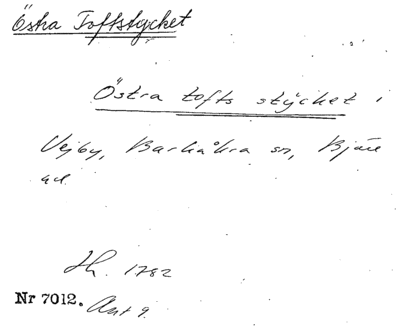 Östra Toftstycket
Östra tofts stycket i
Vejby, Barkåkra sn, Bjäre
hd
Jh. 1782
Nr 7012. Akt 9.